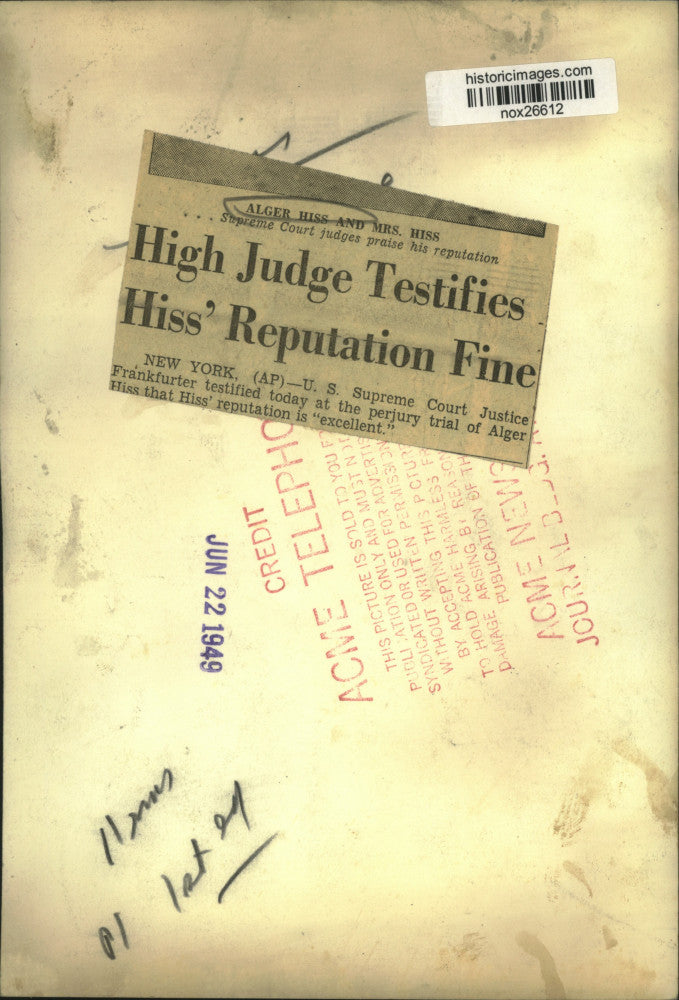 historicimages.com
nox26612
ALGER HISS AND MRS. HISS
. . . Supreme Court judges praise his reputation
High Judge Testifies
Hiss' Reputation Fine
NEW YORK, (AP)—U. S. Supreme Court Justice
Frankfurter testified today at the perjury trial of Alger
Hiss that Hiss' reputation is "excellent."
CREDIT
ACME TELEPHO
THIS PICTURE IS SOLD TO YOU F
ATION ONLY AND MUST N
SYNDICATED OR USED FOR ADVERTIS
WITHOUT WRITTEN PERMISSION
BY ACCEPTING THIS PICTUR
TO HOLD ACME HARMLESS FR
DAMAGE ARISING BY REASON
PUBLICATION OF TH
ACME NEWS
JUN 22 1949
1st ed
P1